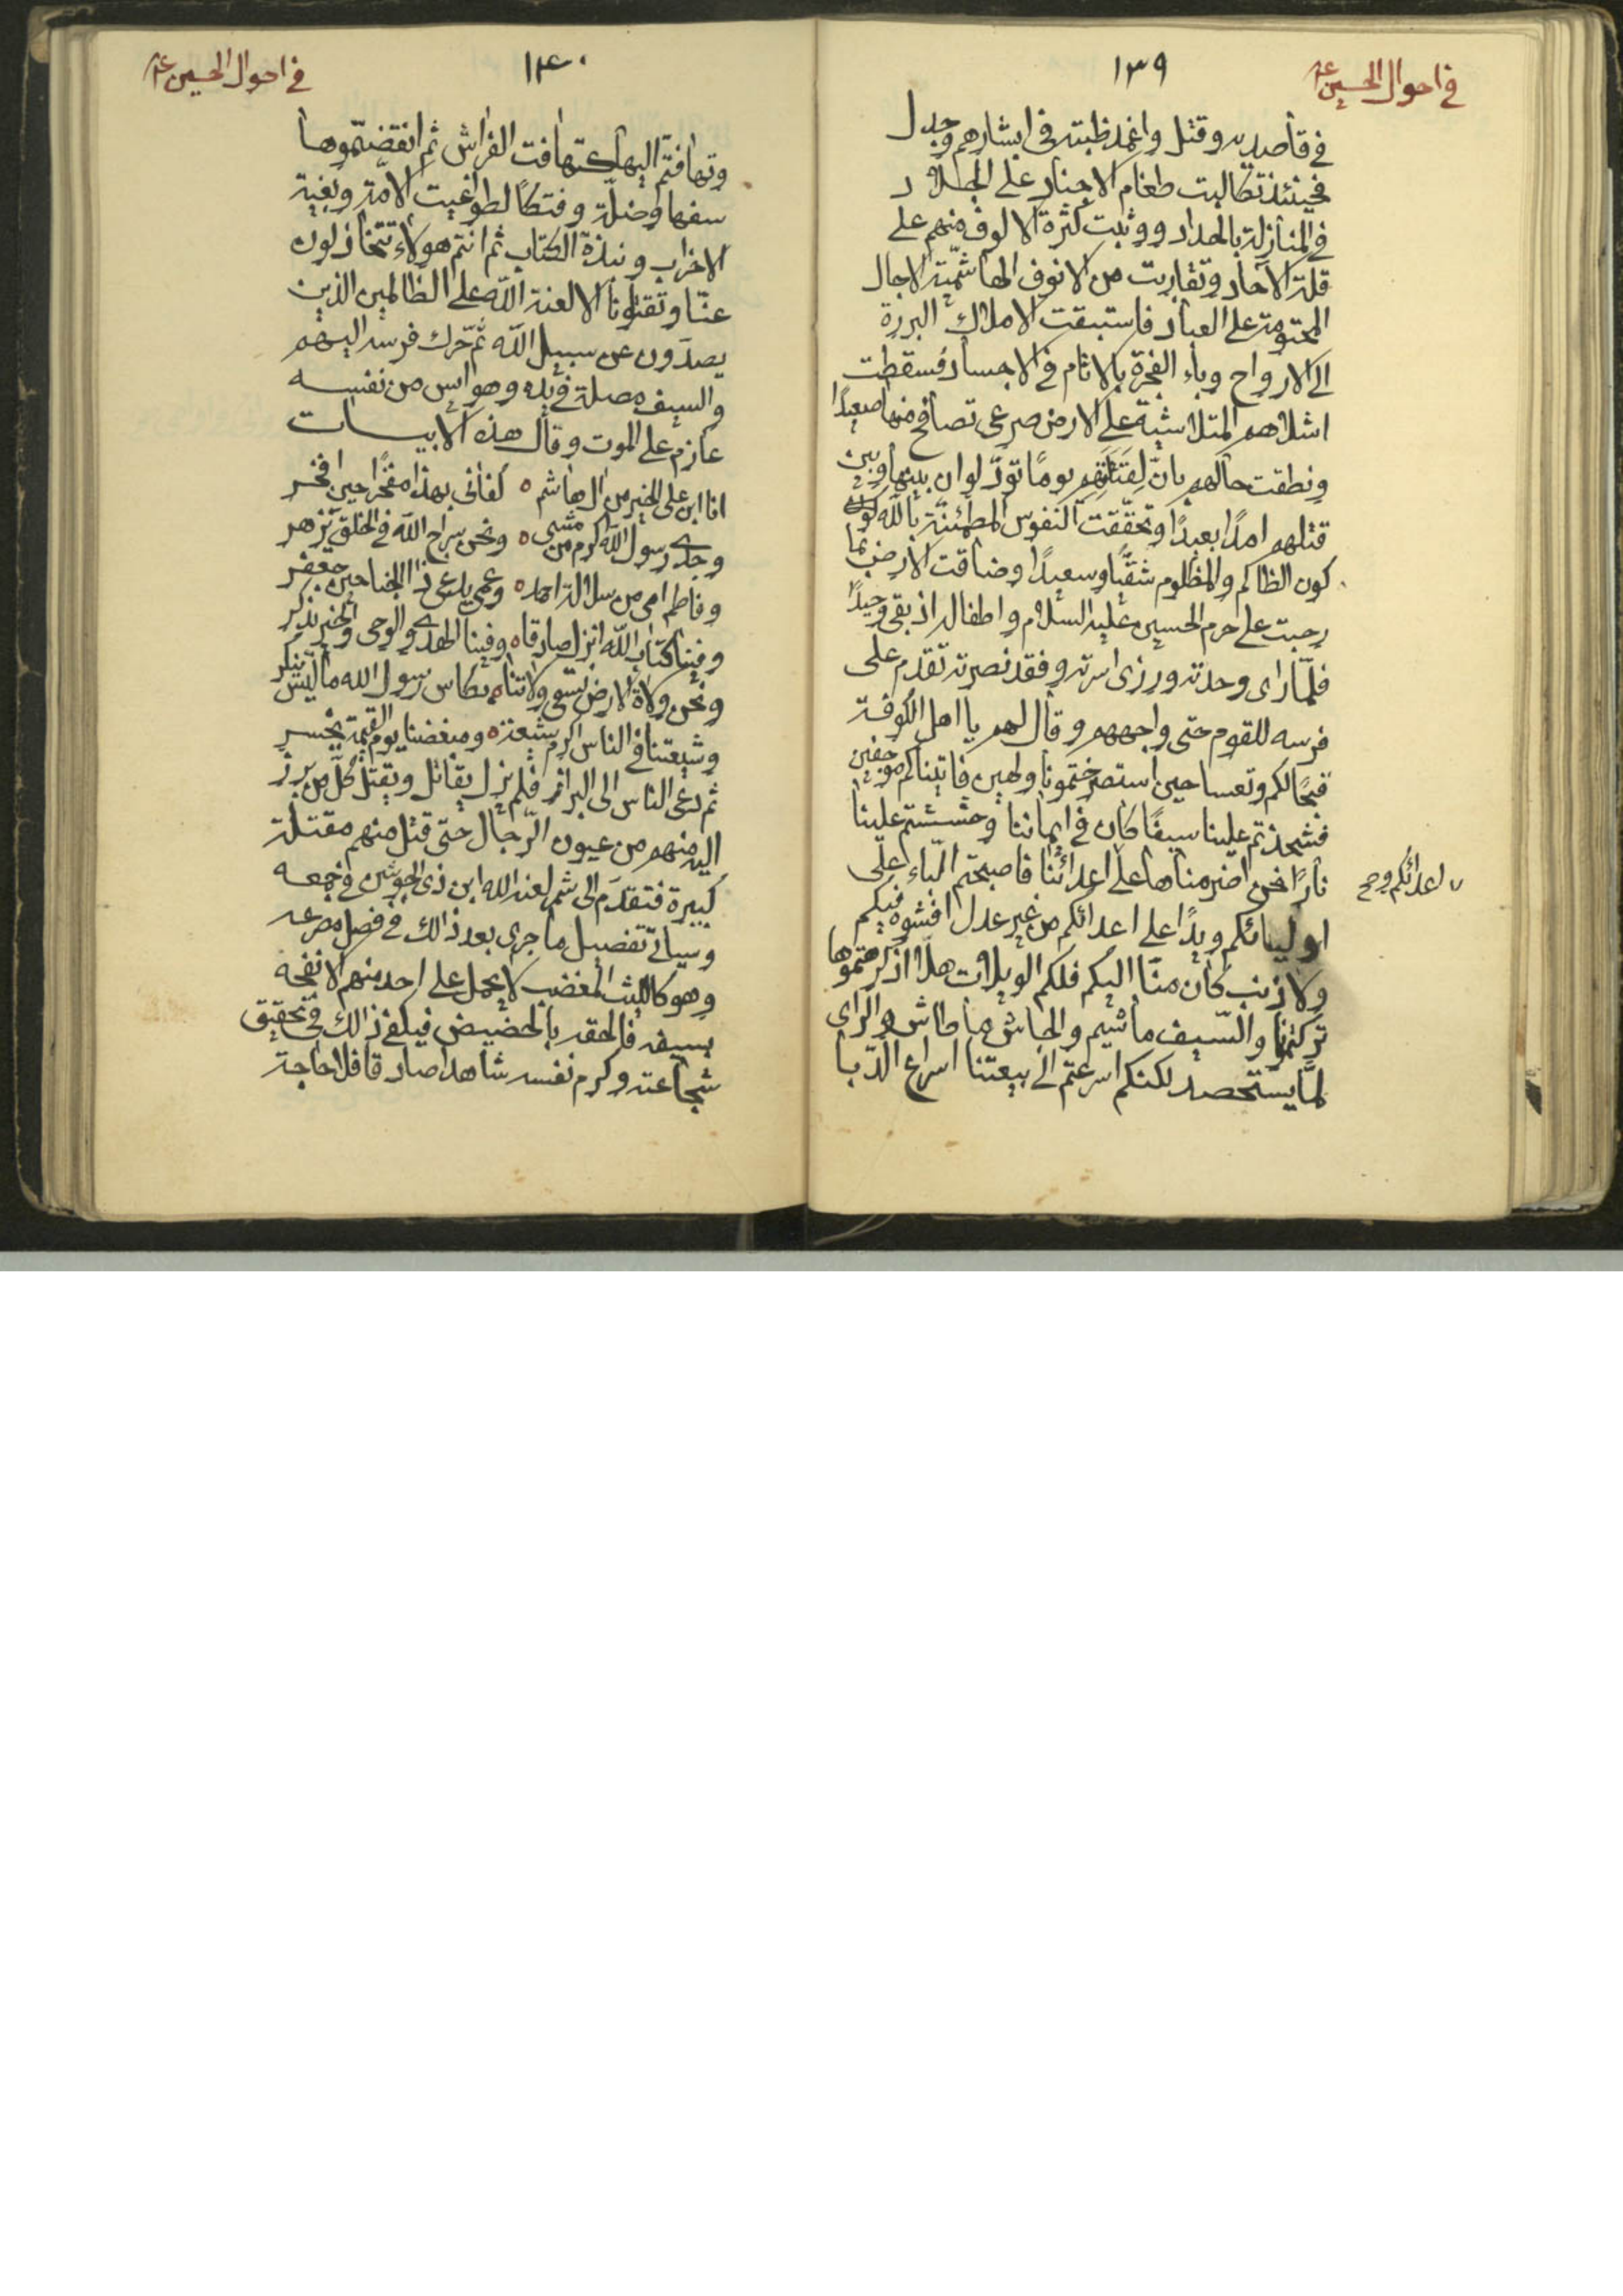 في احوال الحسين ع
١٣٩
في قاصديه وقتل واغمد ظبته في ابشارهم وجدل
فحينئذ تكالبت طغام الاجناد على الجلاد
في المنازلة بالحداد ووثبت كثرة الالوف منهم على
قلة الآحاد وتقاربت من الانوف الهاشمية الاجال
المحتومة على العباد فاستبقت الاملاك البررة
الى الارواح وباء الفجرة بالاثام في الاجساد فسقطت
اشلاهم المتلاشية على الارض صرعى تصافح منها صعيدًا
ونطقت حالهم بانّ لقتلتهم يومًا تودّ لو ان بينها وبين
قتلهم امدًا بعيدًا وتحققت النفوس المطمئنة بالله كون
كون الظالم والمظلوم شقيًا وسعيدًا وضاقت الارض بما
رحبت على حرم الحسين عليه السلام واطفاله اذ بقي وحيدًا
فلمّا راى وحدته ورزى اسرته وفقد نصرته تقدم على
فرسه للقوم حتى واجههم وقال لهم يا اهل الكوفة
قبحًا لكم وتعسا حين استصرختمونا ولهين فاتيناكم موجفين
فشحذتم علينا سيفًا كان في ايماننا وحششتم علينا
نارًا نحن اضرمناها على اعدائنا فاصبحتم البّاء على
اعدائكم وح
اوليائكم ويدًا على اعدائكم من غير عدل افشوه فيكم
ولا ذنب كان منّا اليكم فلكم الويلات هلّا اذ كرهتموها
تركتمونا والسّيف ماشيم والجاش ما طاش والراى
لمّا يستحصد لكنكم اسرعتم الى بيعتنا اسراع الدّبا
في احوال الحسين ع
١٤٠
وتهافتم اليها كتهافت الفراش ثم انقضتموها
سفها وضلّة وفتكًا لطواغيت الامّة وبقية
الاحزاب ونبذة الكتاب ثم انتم هولاء تتخاذلون
عنّا وتقتلونا الا لعنة الله على الظالمين الذين
يصدّون عن سبيل الله ثم حرّك فرسه اليهم
والسيف مصلة في يده وهو آيس من نفسه
عازم على الموت وقال هذه الابيات
انا ابن علي الخير من ال هاشم ٥ كفاني بهذا مفخرًا حين افخر
وجدّي رسول الله اكرم من مشى ٥ ونحن سراج الله في الخلق يزهر
وفاطم امي من سلالة احمد ٥ وعمي يدعى ذا الجناحين جعفر
وفينا كتاب الله انزل صادقا ٥ وفينا الهدى والوحي والخير يذكر
ونحن ولاة الارض نسقي ولاتنا ٥ بكاس رسول الله ما ليس ينكر
وشيعتنا في الناس اكرم شيعة ٥ ومبغضنا يوم القيمة يخسر
ثم دعى الناس الى البراز فلم يزل يقاتل ويقتل كلّ من برز
اليه منهم من عيون الرّجال حتى قتل منهم مقتلة
كبيرة فتقدّم الى شمر لعنه الله ابن ذي الجوشن في جمعه
وسياتي تفصيل ما جرى بعد ذالك في فصل مصرعه
وهو كالليث المغضب لا يحمل على احد منهم الا نفحه
بسيفه فالحقه بالحضيض فيكفي ذالك في تحقيق
شجاعته وكرم نفسه شاهدا صادقا فلا حاجة